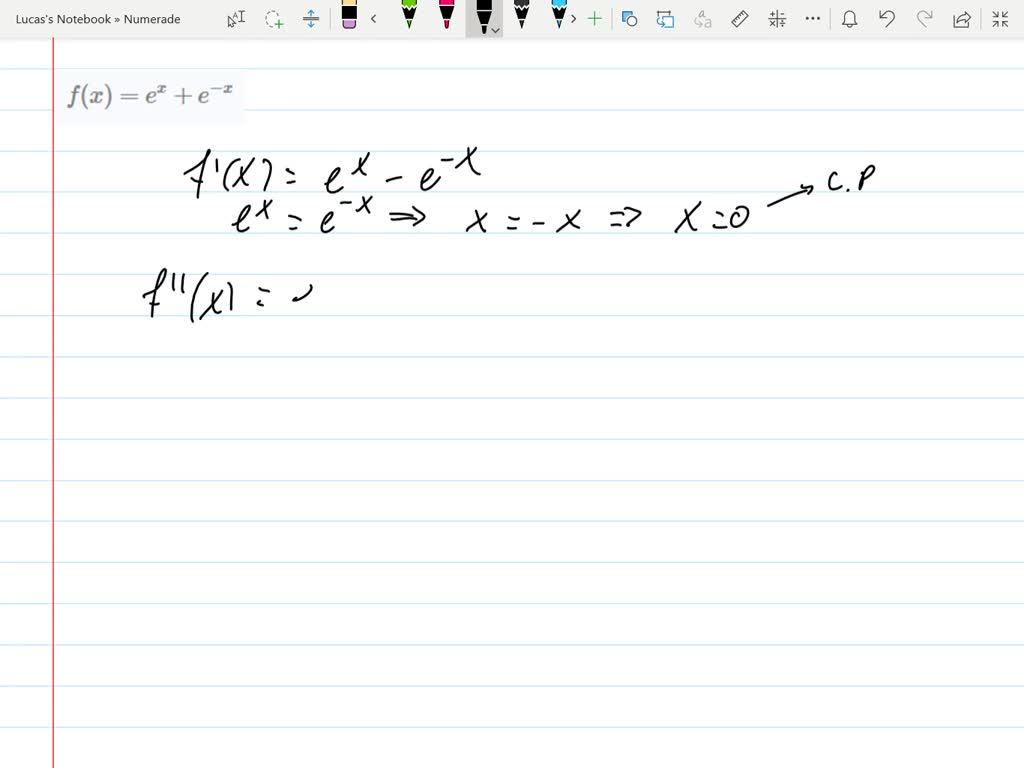 Lucas's Notebook » Numerade
f(x) = e^x + e^{-x}
f'(x) = e^x - e^{-x}
e^x = e^{-x} ⇒ x = -x ⇒ x = 0 → C.P
f''(x) =